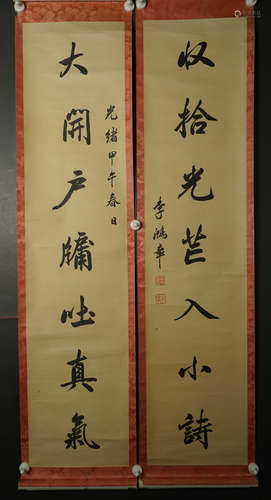 收拾光芒入小詩
李鴻章
光緒甲午春日
大開户牖吐真氣